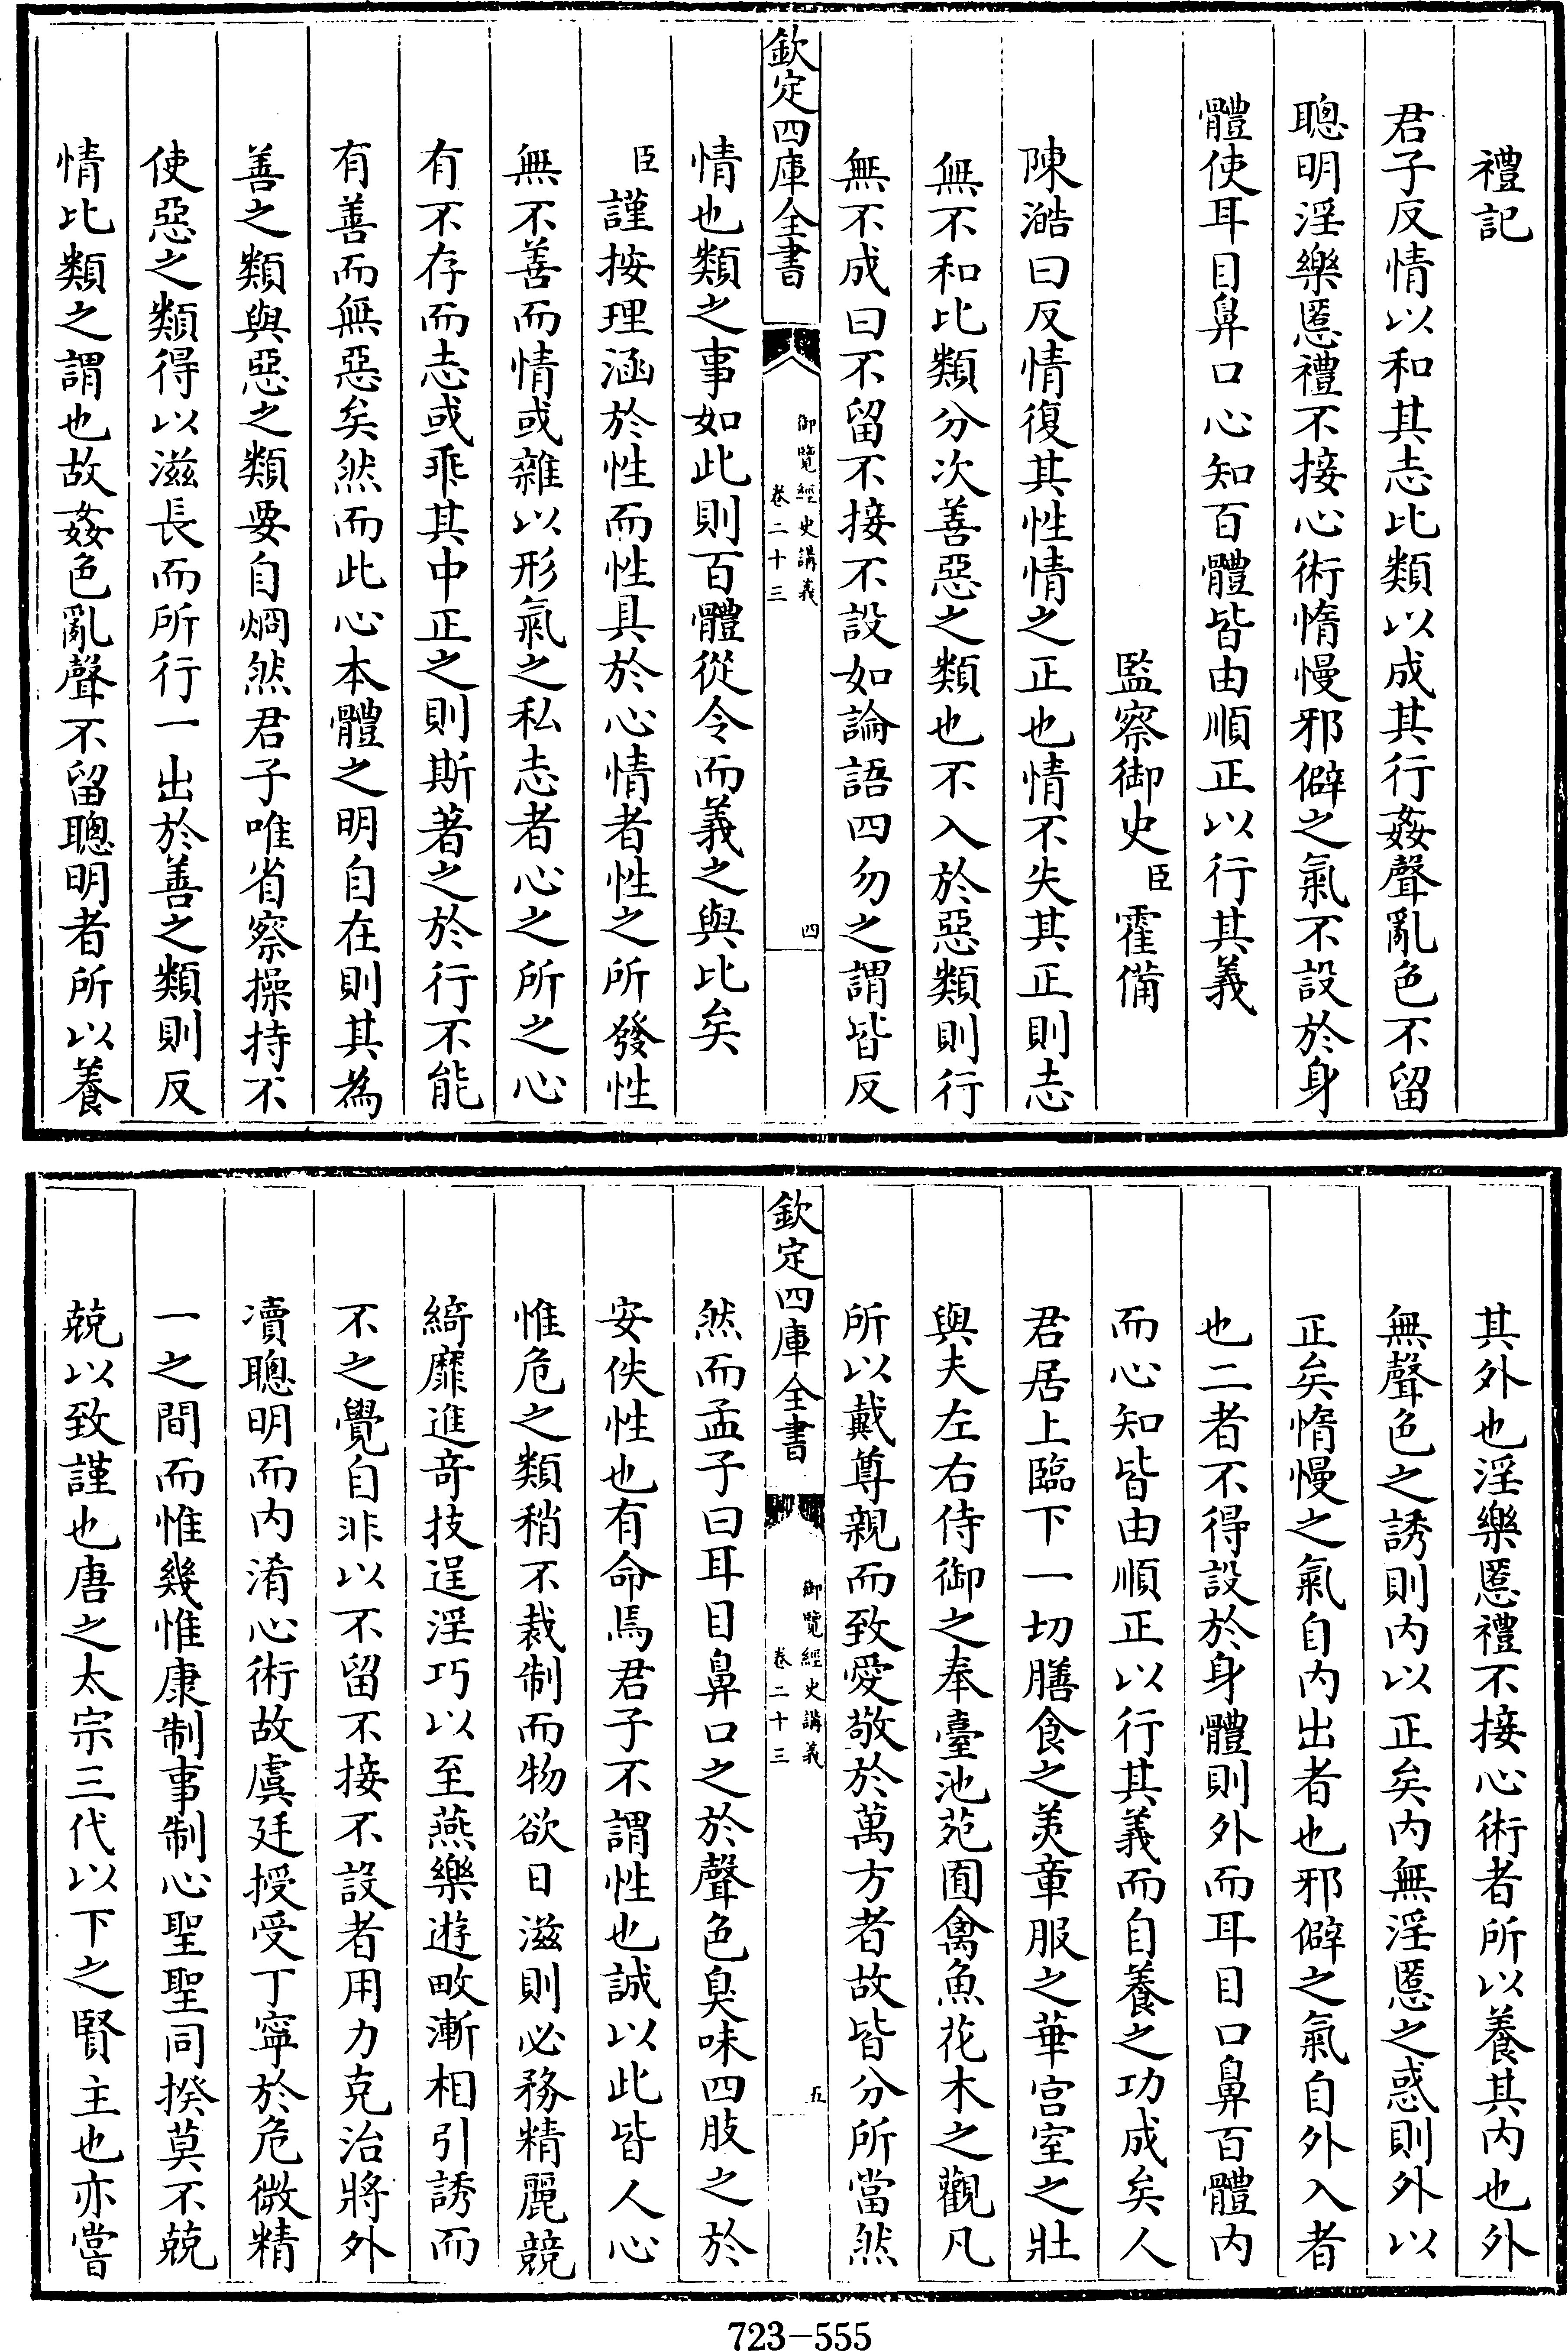 禮記
君子反情以和其志比類以成其行姦聲亂色不留
聰明淫樂慝禮不接心術惰慢邪僻之氣不設於身
體使耳目鼻口心知百體皆由順正以行其義
監察御史臣霍備
陳澔曰反情復其性情之正也情不失其正則志
無不和比類分次善惡之類也不入於惡類則行
無不成曰不留不接不設如論語四勿之謂皆反
欽定四庫全書
御覽經史講義
卷二十三
四
情也類之事如此則百體從令而義之與比矣
臣謹按理涵於性而性具於心情者性之所發性
無不善而情或雜以形氣之私志者心之所之心
有不存而志或乖其中正之則斯著之於行不能
有善而無惡矣然而此心本體之明自在則其為
善之類與惡之類要自烱然君子唯省察操持不
使惡之類得以滋長而所行一出於善之類則反
情比類之謂也故姦色亂聲不留聰明者所以養
其外也淫樂慝禮不接心術者所以養其內也外
無聲色之誘則內以正矣內無淫慝之惑則外以
正矣惰慢之氣自內出者也邪僻之氣自外入者
也二者不得設於身體則外而耳目口鼻百體內
而心知皆由順正以行其義而自養之功成矣人
君居上臨下一切膳食之美章服之華宮室之壯
與夫左右侍御之奉臺池苑囿禽魚花木之觀凡
所以戴尊親而致愛敬於萬方者故皆分所當然
欽定四庫全書
御覽經史講義
卷二十三
五
然而孟子曰耳目鼻口之於聲色臭味四肢之於
安佚性也有命焉君子不謂性也誠以此皆人心
惟危之類稍不裁制而物欲日滋則必務精麗競
綺靡進奇技逞淫巧以至燕樂遊畋漸相引誘而
不之覺自非以不留不接不設者用力克治將外
凟聰明而內淆心術故虞廷授受丁寧於危微精
一之間而惟幾惟康制事制心聖聖同揆莫不兢
兢以致謹也唐之太宗三代以下之賢主也亦嘗
723-555